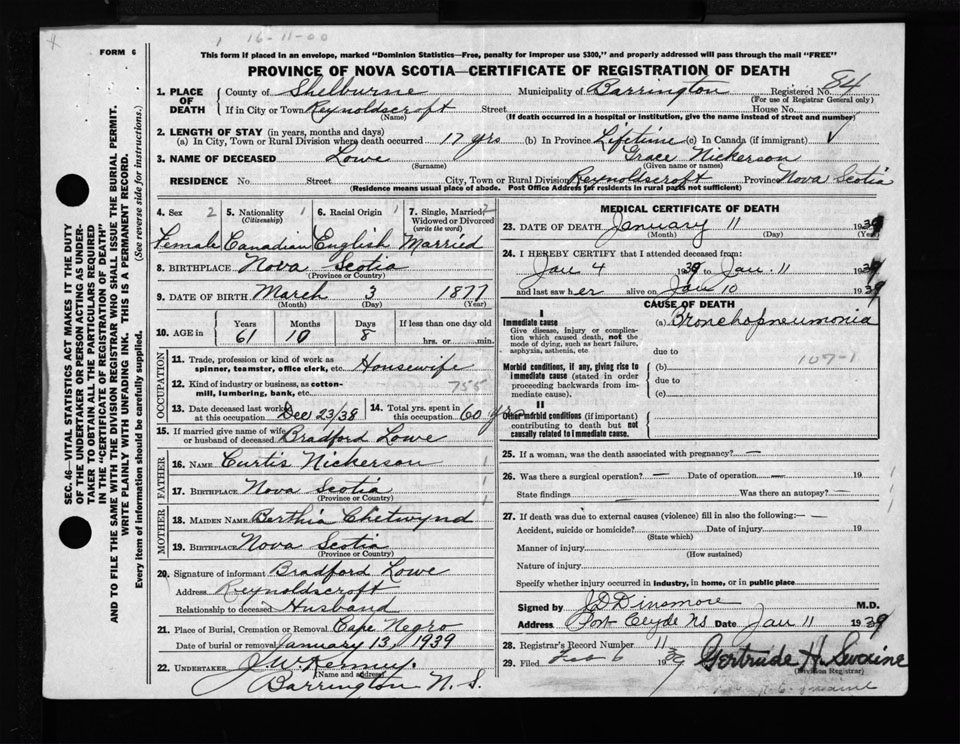 16-11-00
FORM 6
This form if placed in an envelope, marked "Dominion Statistics—Free, penalty for improper use $300," and properly addressed will pass through the mail "FREE"
PROVINCE OF NOVA SCOTIA—CERTIFICATE OF REGISTRATION OF DEATH
84
1. PLACE OF DEATH
County of Shelburne Municipality of Barrington Registered No.
(For use of Registrar General only)
If in City or Town Reynoldscroft Street House No.
(Name) (If death occurred in a hospital or institution, give the name instead of street and number)
2. LENGTH OF STAY (in years, months and days)
(a) In City, Town or Rural Division where death occurred 17 yrs (b) In Province Lifetime (c) In Canada (if immigrant)
3. NAME OF DECEASED Lowe Grace Nickerson
(Surname) (Given name or names)
RESIDENCE No. Street City, Town or Rural Division Reynoldscroft Province Nova Scotia
(Residence means usual place of abode. Post Office Address for residents in rural parts not sufficient)
4. Sex 2 5. Nationality 1 6. Racial Origin 1 7. Single, Married, 2
(Citizenship) Widowed or Divorced
(write the word)
Female Canadian English Married
8. BIRTHPLACE Nova Scotia
(Province or Country)
9. DATE OF BIRTH March 3 1877
(Month) (Day) (Year)
10. AGE in Years Months Days If less than one day old
61 10 8 hrs. or min.
OCCUPATION
11. Trade, profession or kind of work as spinner, teamster, office clerk, etc. Housewife
12. Kind of industry or business, as cotton-mill, lumbering, bank, etc. 755
13. Date deceased last worked at this occupation Dec 23/38 14. Total yrs. spent in this occupation 60 yrs
15. If married give name of wife or husband of deceased Bradford Lowe
FATHER
16. NAME Curtis Nickerson 1
17. BIRTHPLACE Nova Scotia 1
(Province or Country)
MOTHER
18. MAIDEN NAME Berthia Chetwynd
19. BIRTHPLACE Nova Scotia
(Province or Country)
20. Signature of informant Bradford Lowe
Address Reynoldscroft
Relationship to deceased Husband
21. Place of Burial, Cremation or Removal Cape Negro
Date of burial or removal January 13, 1939
22. UNDERTAKER J. W. Kenney.
(Name and address)
Barrington N.S.
MEDICAL CERTIFICATE OF DEATH
23. DATE OF DEATH January 11 1939
(Month) (Day) (Year)
24. I HEREBY CERTIFY that I attended deceased from:
Jan 4 1939 to Jan. 11 1939
and last saw her alive on Jan 10 1939
CAUSE OF DEATH
I
Immediate cause (a) Bronchopneumonia
Give disease, injury or complication which caused death, not the mode of dying, such as heart failure, asphyxia, asthenia, etc.
due to
107-1
Morbid conditions, if any, giving rise to immediate cause (stated in order proceeding backwards from immediate cause).
(b)
due to
(c)
II
Other morbid conditions (if important) contributing to death but not causally related to immediate cause.
25. If a woman, was the death associated with pregnancy? —
26. Was there a surgical operation? — Date of operation — 19
State findings Was there an autopsy? —
27. If death was due to external causes (violence) fill in also the following:—
Accident, suicide or homicide? Date of injury 19
(State which)
Manner of injury
(How sustained)
Nature of injury
Specify whether injury occurred in industry, in home, or in public place
Signed by J D Dinsmore M.D.
Address Port Clyde NS Date Jan 11 1939
28. Registrar's Record Number 11
29. Filed Feb 6 1939 Gertrude H. Swaine
(Division Registrar)
SEC. 46—VITAL STATISTICS ACT MAKES IT THE DUTY
OF THE UNDERTAKER OR PERSON ACTING AS UNDER-
TAKER TO OBTAIN ALL THE PARTICULARS REQUIRED
IN THE "CERTIFICATE OF REGISTRATION OF DEATH"
AND TO FILE THE SAME WITH THE DIVISION REGISTRAR WHO SHALL ISSUE THE BURIAL PERMIT.
WRITE PLAINLY WITH UNFADING INK. THIS IS A PERMANENT RECORD.
Every item of information should be carefully supplied. (See reverse side for instructions.)